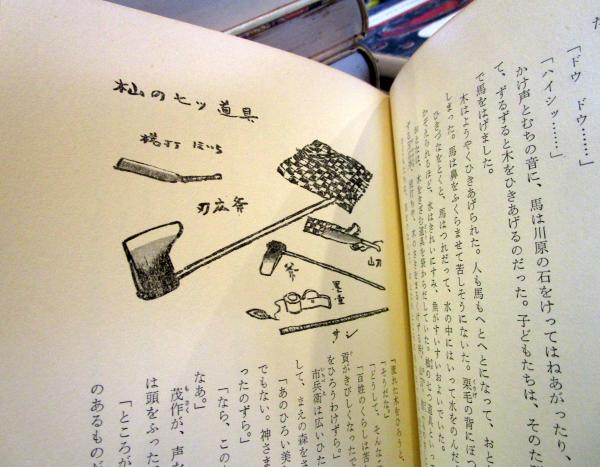 「ドウ ドウ……」
「ハイシッ……」
かけ声とむちの音に、馬は川原の石をけってはねあがったり、
て、ずるずると木をひきあげるのだった。子どもたちは、そのた
で馬をはげました。
木はようやくひきあげられた。人も馬もへとへとになって、おと
しまった。馬は鼻をふくらませて苦しそうにないた。栗毛の背にぽつ
ひきづなをとくと、馬はつれだって、水の中にはいって水をのんだ
かぞえられるほど、水はきれいにすみ、魚がすいすいおよいでいた。
杣の七ツ道具
横打 ほいち
刃広斧
山刀
斧
墨壺
サシ
「流れた木をひろうと、
「そうだな。」
「どうして、そんな
「百姓のくらしは苦
貢がきびしくなったで
をひろうわけずら。」
市兵衛は広いひた
して、まえの森をさ
「あのひろい美
でもない。神さま
ったのずら。」
「なら、この
なあ。」
茂作が、声な
は頭をふった
「ところが
のあるものど